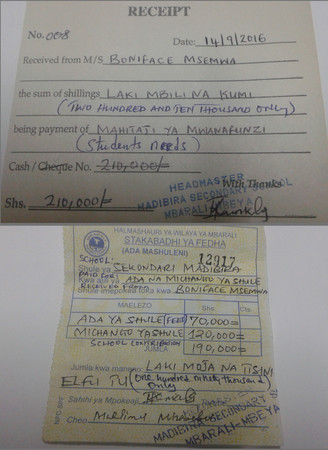 RECEIPT
No. 008
Date: 14/9/2016
Received from M/S BONIFACE MSEMWA
the sum of shillings LAKI MBILI NA KUMI
(TWO HUNDRED AND TEN THOUSAND ONLY)
being payment of MAHITAJI YA MWANAFUNZI
(Students needs)
Cash / Cheque No. 210,000/=
With Thanks
Shs. 210,000/=
HEADMASTER
MADIBIRA SECONDARY SCHOOL
MBARALI-MBEYA
HALMASHAURI YA WILAYA YA MBARALI
STAKABADHI YA FEDHA
(ADA MASHULENI)
12917
SCHOOL:
Shule ya SEKONDARI MADIBIRA
PAID FOR:
Kwa ajili ya ADA NA MICHANGO YA SHULE
RECEIVED FROM
Shule imepokea toka kwa BONIFACE MSEMWA
MAELEZO Shs. Cts.
ADA YA SHULE (FEES) 70,000=
MICHANGO YA SHULE 120,000=
SCHOOL CONTRIBUTION
JUMLA 190,000=
Jumla kwa maneno LAKI MOJA NA TISINI
ELFU TU (One hundred ninety thousand only)
Sahihi ya Mpokeaji
Cheo
MADIBIRA SECONDARY
MBARALI-MBEYA